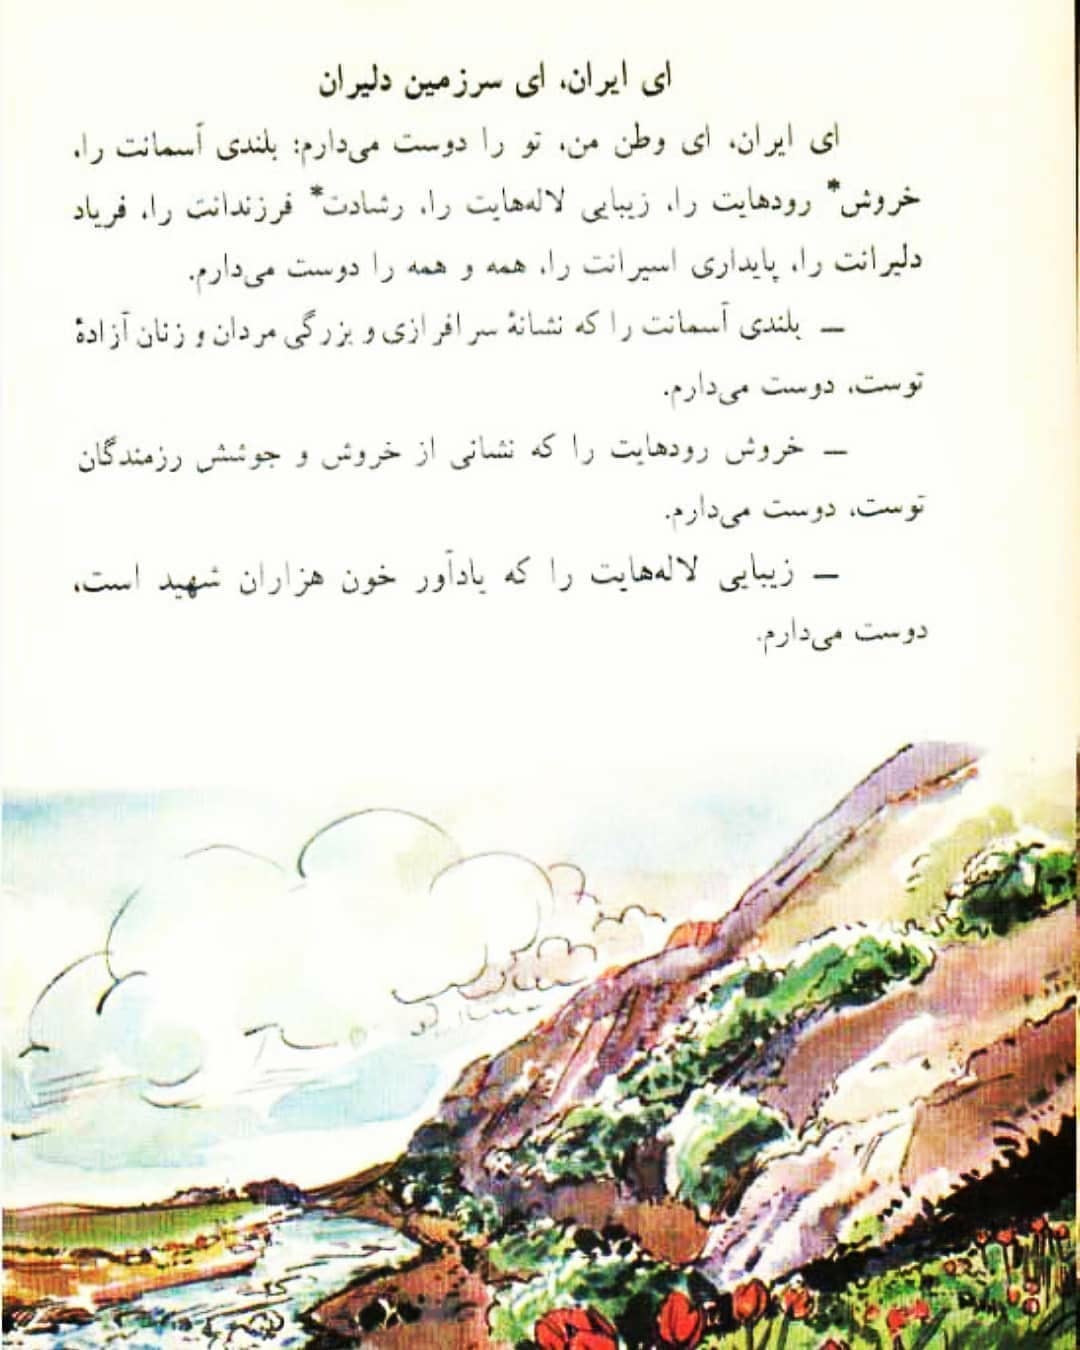 ای ایران، ای سرزمین دلیران
ای ایران، ای وطن من، تو را دوست می‌دارم: بلندی آسمانت را،
خروش* رودهایت را، زیبایی لاله‌هایت را، رشادت* فرزندانت را، فریاد
دلیرانت را، پایداری اسیرانت را، همه و همه را دوست می‌دارم.
ــ بلندی آسمانت را که نشانهٔ سرافرازی و بزرگی مردان و زنان آزادهٔ
توست، دوست می‌دارم.
ــ خروش رودهایت را که نشانی از خروش و جوشش رزمندگان
توست، دوست می‌دارم.
ــ زیبایی لاله‌هایت را که یادآور خون هزاران شهید است،
دوست می‌دارم.